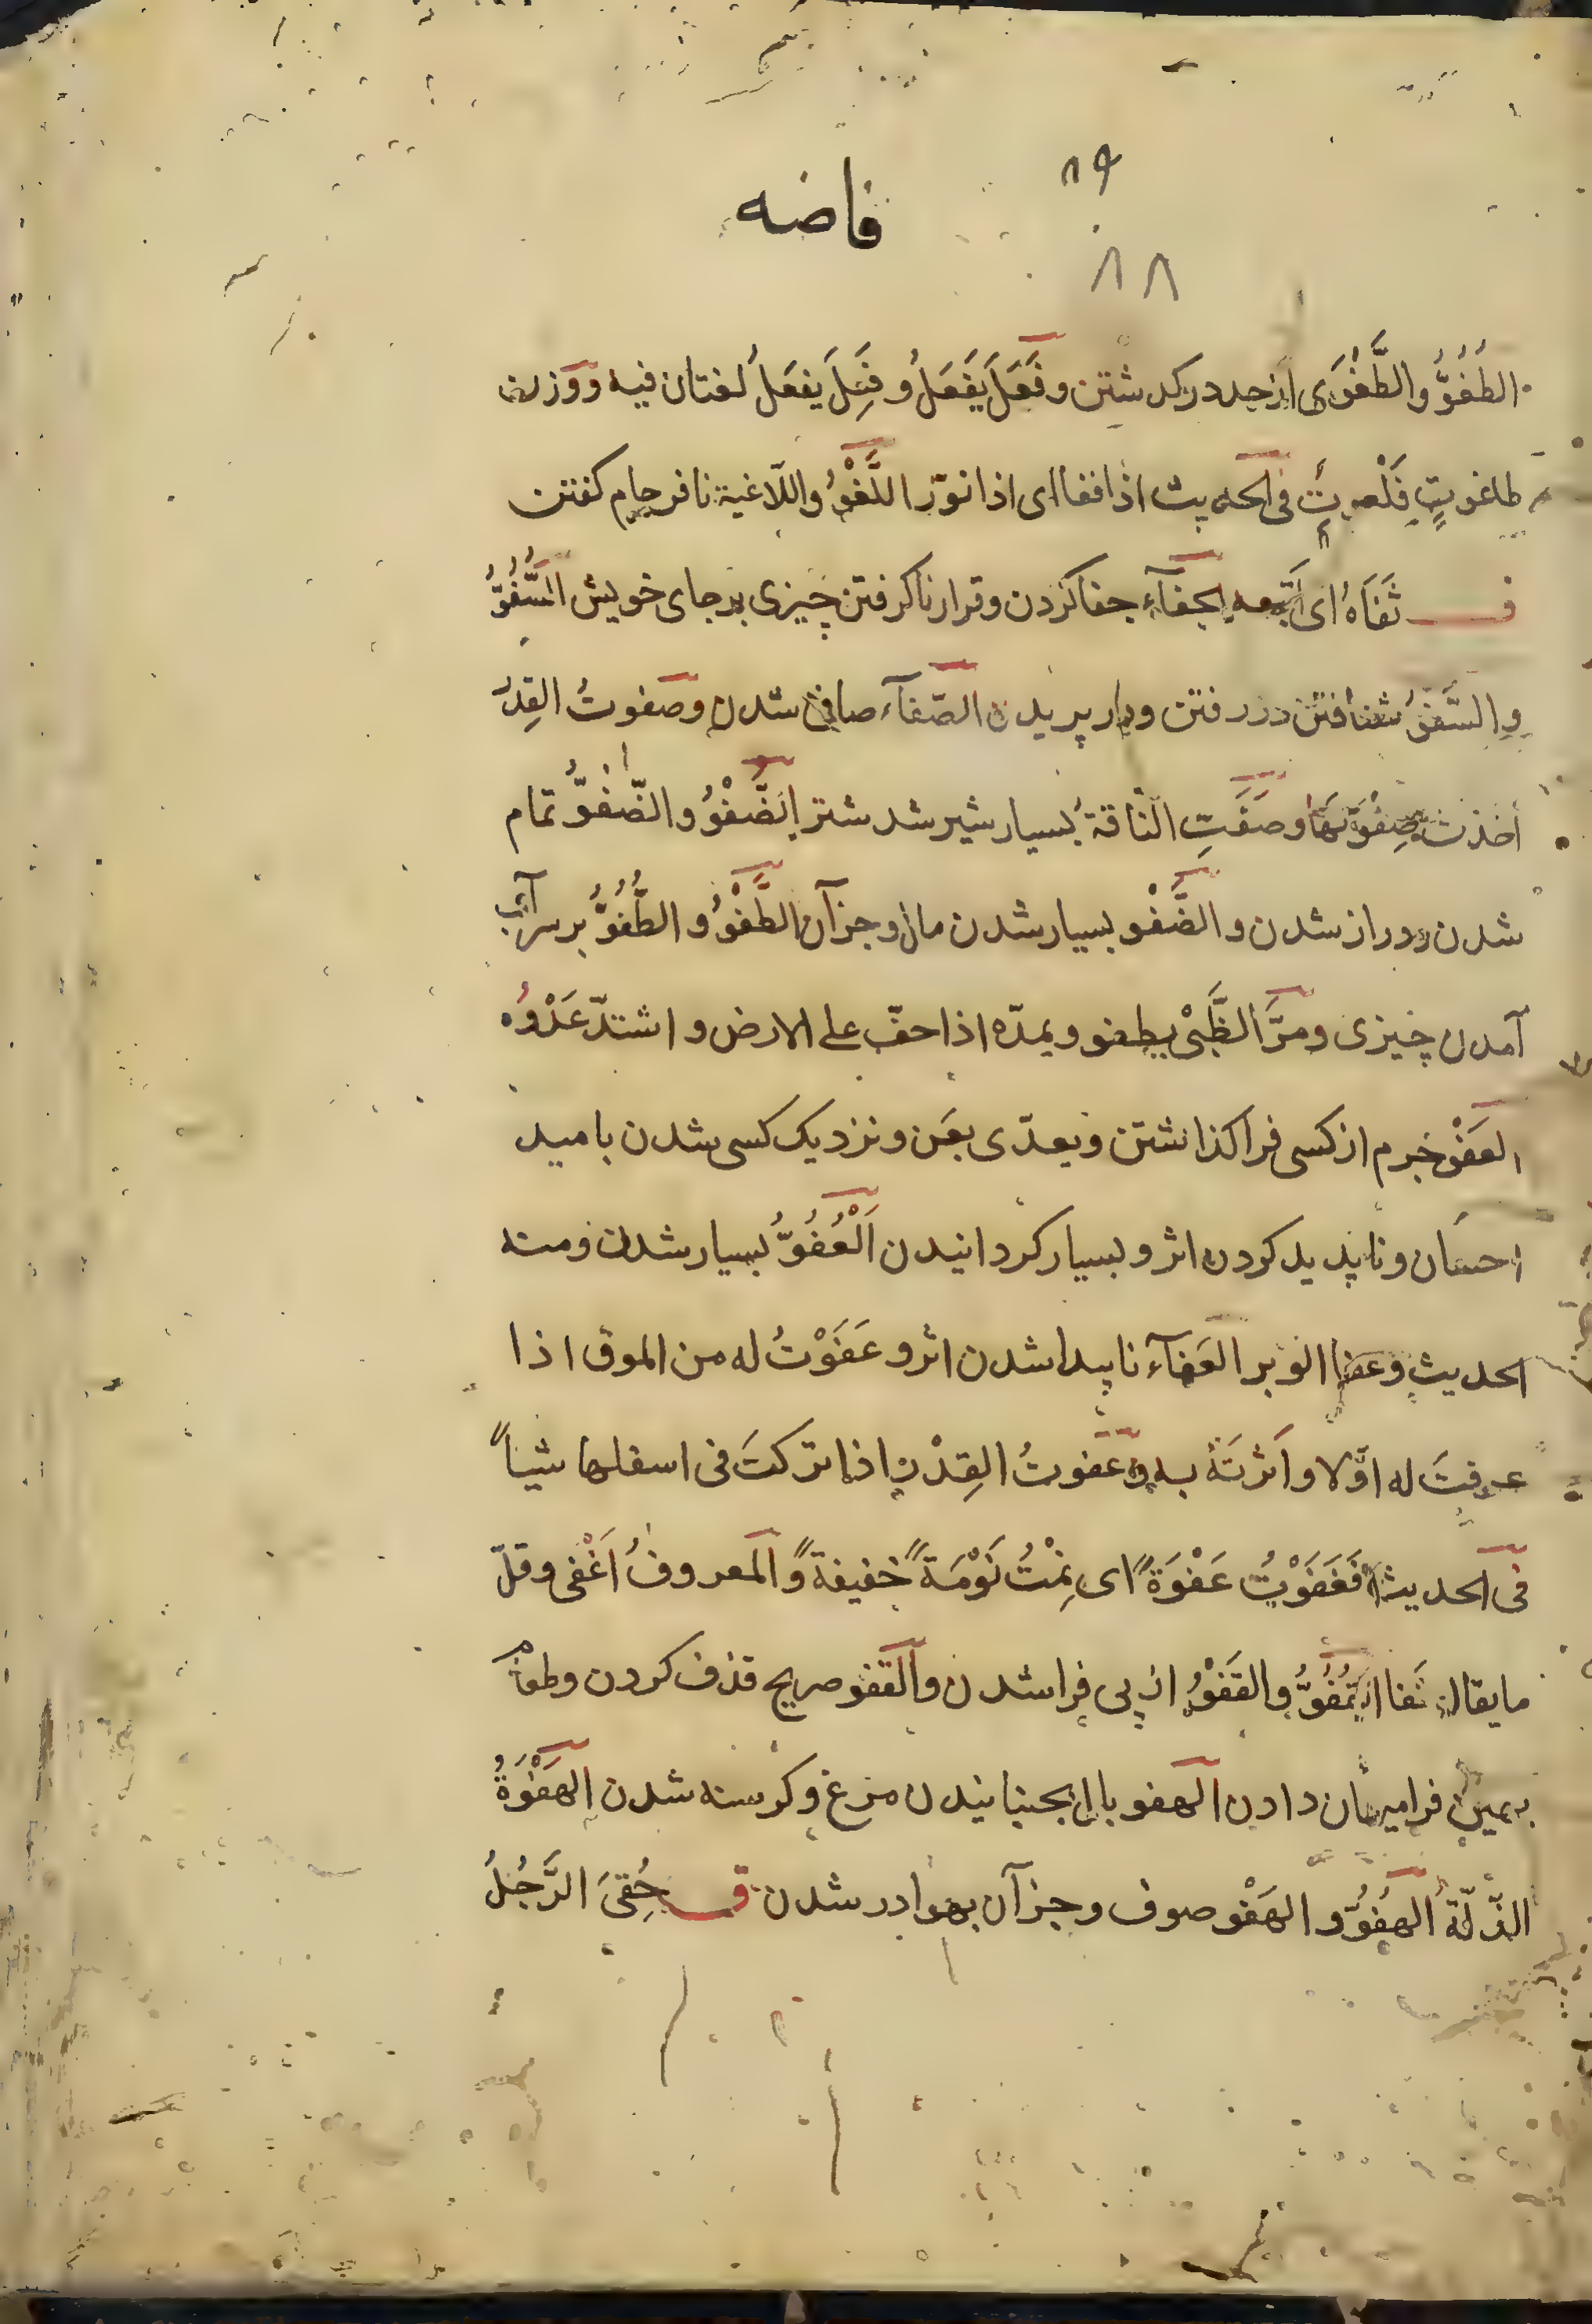 ۸۹
فاضه
۸۸
الطُغُوُّ والطَّغْوَى ازحد درکد شتن و فَعَلَ يَفْعَلُ و فَعِلَ يفعَلُ لغتان فيه ووزن
طاغوتٍ فى الحديث اذا اى اذا اللَّغْوُ واللّاغية نافرجام كفتن
ف ثَفَاهُ اى الجفآء جفا كردن وقرار نا كرفتن چيزى برجاى خويش السُّفُوُّ
والسَّفْوُ شتافتن در رفتن و پريدن الصّفآء صافى شدن وصفوتُ القِدرَ
أخذت صِفْوَتها وصَفَتِ النّاقةُ بسيار شير شد شتر الضَّفْوُ والضُّفُوُّ تمام
شدن ودراز شدن والضَّفْو بسيار شدن مال وجزآن الطَّفْوُ والطُّفُوُّ برسر آب
آمدن چيزى ومرَّ الظَّبْىُ يطفو اذا خفّ على الارض واشتدّ عَدْوُه
العَفْو جرم از كسى فرا كذاشتن ويعدّى بعَن ونزديک كسى شدن باميد
احسان وناپديد كردن اثر وبسيار كردانيدن اَلْعُفُوُّ بسيار شدن ومنه
الحديث وعفا الوبر العَفآء ناپيدا شدن اثر وعَفَوْتُ له من المرق اذا
غرفتَ له اوّلا واَثرتَهُ به وعفوتُ القِدْر اذا تركتَ فى اسفلها شيأً
فى الحديث فَغَفَوْتُ غَفْوَةً اى نِمْتُ نَوْمَةً خفيفةً والمعروفُ اَغْفى وقلّ
مايقال غفا القُفُوُّ والقَفْوُ از پى فرا شدن والقفو صريح قذف كردن وطعام
دادن الهفو بال بجنبانيدن مرغ وكرسنه شدن الهَفْوَةُ
الزّلّة الهُفُوّ والهَفْو صوف وجزآن بهوا در شدن ق حُقِىَ الرَّجُلُ